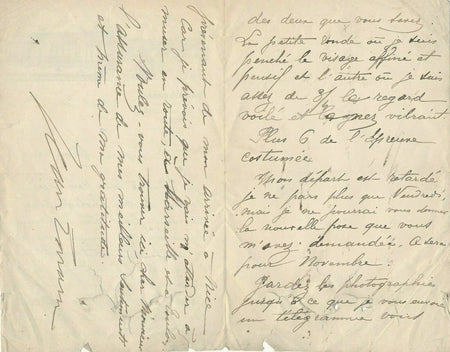 des deux que vous savez.
La petite ronde où je suis
penché le visage affiné et
pensif et l'autre où je suis
assez de 3/4 le regard
voilé et vibrant
Plus 6 de l'Epreuve
costumée
Mon départ est retardé
je ne pars plus que Vendredi
mais je ne pourrai vous donner
la nouvelle pose que vous
m'avez demandée. Ce sera
pour Novembre.
Gardez les photographies
jusqu'à ce que je vous envoie
un télégramme vous
prévenant de mon arrivée à Nice
Car je prévois que je vais m'attarder à
muser en route, à Marseille et
Veuillez-vous trouver ici cher Monsieur
l'assurance de mes meilleurs sentiments
et même de ma gratitude
Jean Lorrain